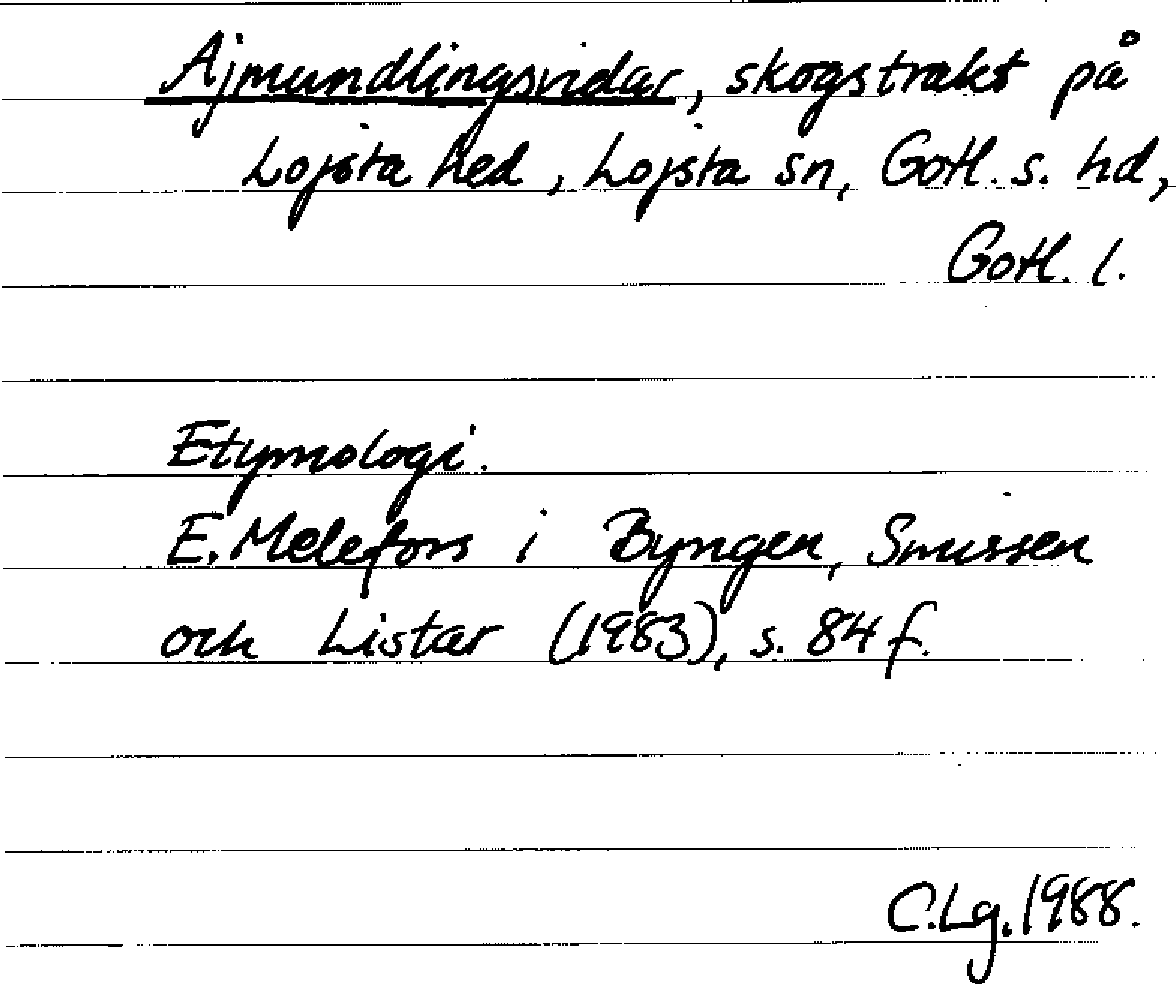 Ajmundlingsvidar, skogstrakt på
Lojsta hed, Lojsta sn, Gotl. s. hd,
Gotl. l.
Etymologi.
E. Melefors i Byngen, Snussen
och Listar (1983), s. 84 f.
C.Lg. 1988.